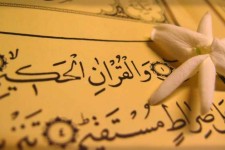 وَالْقُرْآنِ الْحَكِيمِ
صِرَاطٍ مُسْتَقِيمٍ ٤